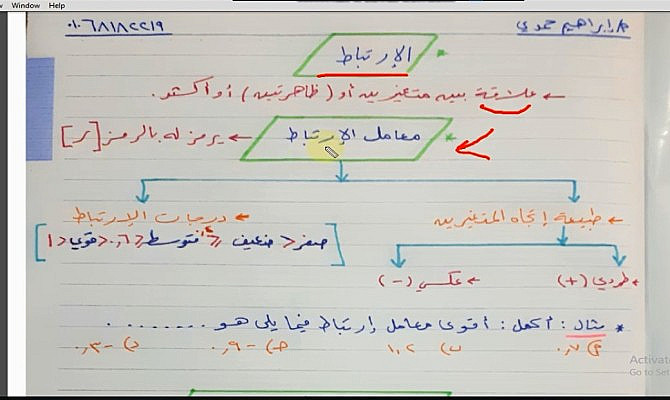 Window Help
م/ إبراهيم حمدي ٠١٠٦٨١٨٢٢١٩
* الإرتباط
← علاقة بين متغيرين أو (ظاهرتين) أو أكثر.
* معامل الإرتباط ← يرمز له بالرمز [ر]
← طبيعة إتجاه المتغيرين ← درجات الإرتباط
[صفر < ضعيف ≤ ٠,٤ < متوسط ≤ ٠,٦ < قوي < ١]
← طردي (+) ← عكسي (-)
* مثال : أكمل : أقوى معامل إرتباط فيما يلي هو ........
أ) ٠,٧ ب) ١,٢ جـ) -٠,٩ د) -٠,٣
Activat
Go to Set